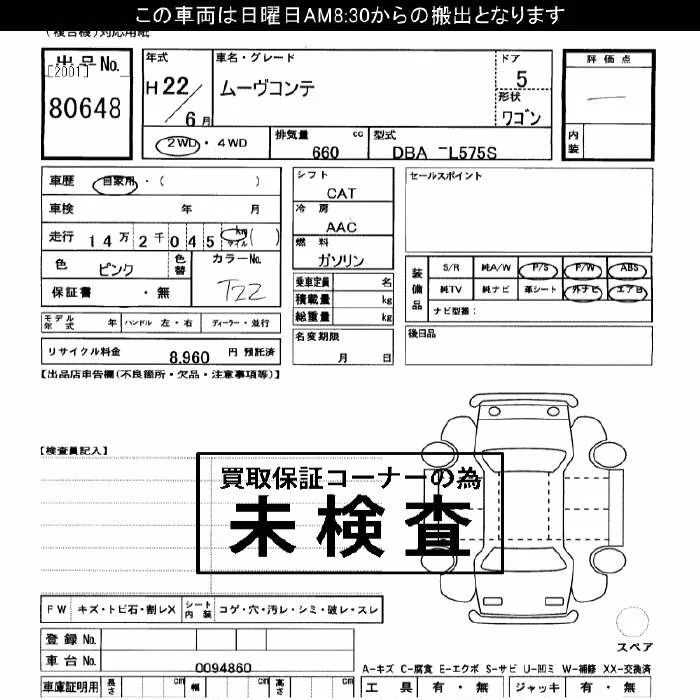 この車両は日曜日AM8:30からの搬出となります
(複合機)対応用紙
出品No. [2001] 80648
年式 H22/6月
車名・グレード ムーヴコンテ
ドア 5
形状 ワゴン
評価点 —
内装
2WD・4WD
排気量 660 cc
型式 DBA -L575S
車歴 自家用・( )
車検 年 月
走行 14万2千045 km マイル ( )
色 ピンク 色替
カラーNo. T22
保証書 ・ 無
シフト CAT
冷房 AAC
燃料 ガソリン
乗車定員 名
積載量 kg
総重量 kg
セールスポイント
装備品 S/R 純A/W P/S P/W ABS
純TV 純ナビ 革シート 外ナビ エアB
ナビ型番:
モデル年式 年 ハンドル 左・右 ディーラー・並行
リサイクル料金 8,960 円 預託済
名変期限 月 日
後日品
【出品店申告欄(不良箇所・欠品・注意事項等)】
【検査員記入】
買取保証コーナーの為
未検査
FW キズ・トビ石・割レX シート内装 コゲ・穴・汚レ・シミ・破レ・スレ
登録No.
車台No. 0094860
スペア
A-キズ C-腐食 E-エクボ S-サビ U-凹ミ W-補修 XX-交換済
車庫証明用 長さ cm 幅 cm 高さ cm
工具 有・無 ジャッキ 有・無